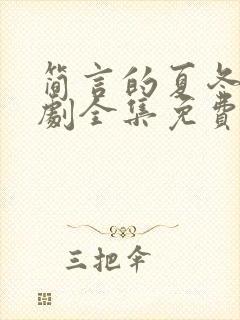 简言的夏冬
劇全集免費
三把伞